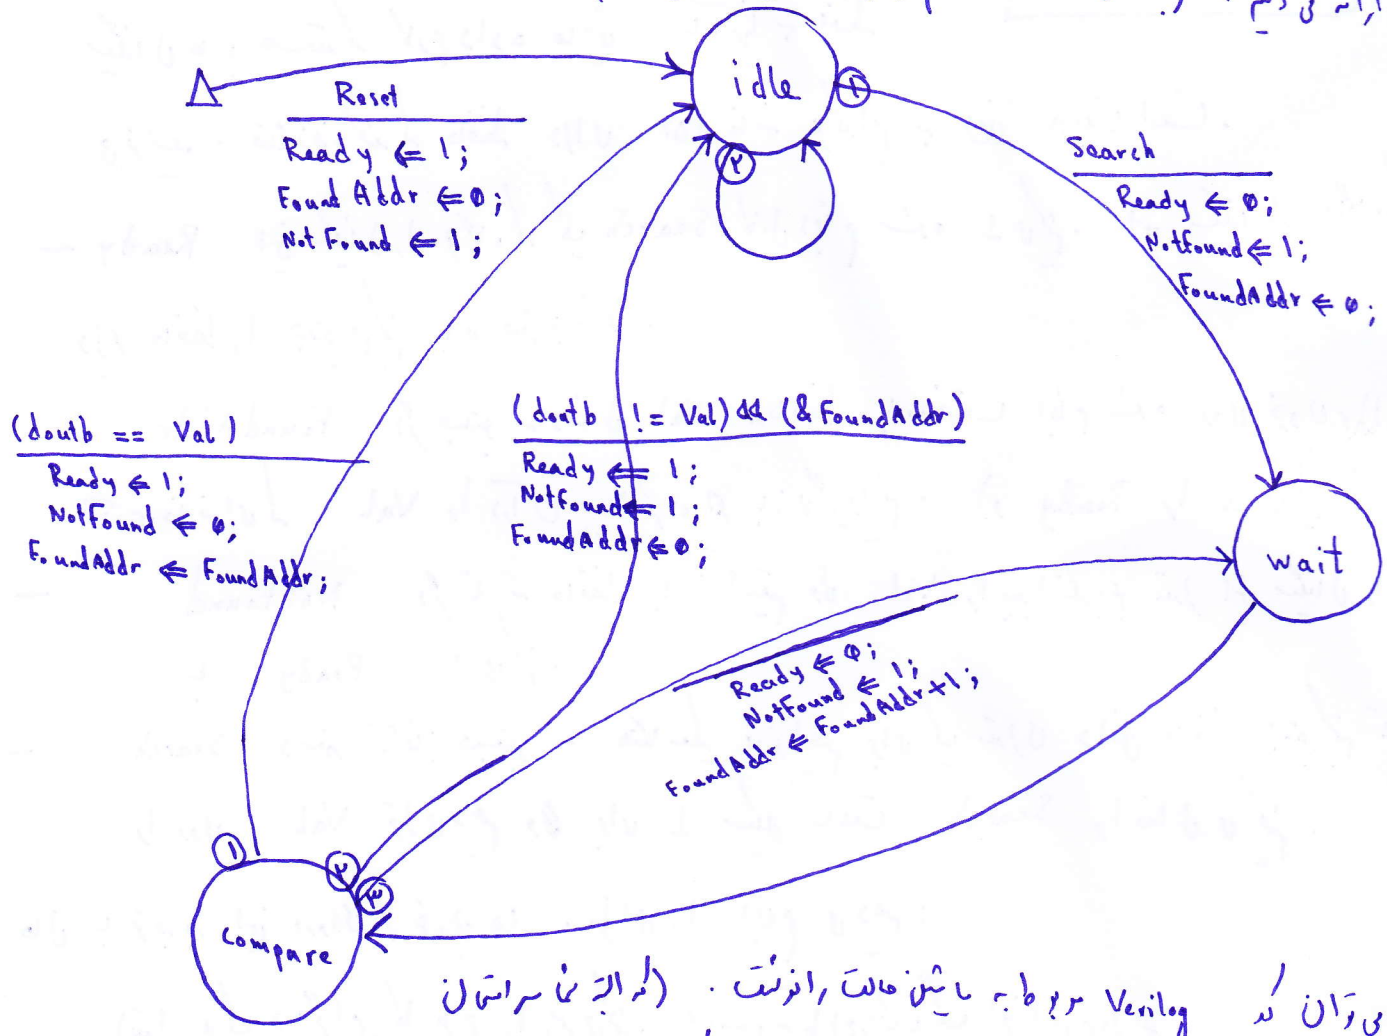 idle
۱
Reset
Ready ⇐ 1;
Found Addr ⇐ 0;
Not Found ⇐ 1;
۲
Search
Ready ⇐ 0;
Notfound ⇐ 1;
FoundAddr ⇐ 0;
(doutb == Val)
Ready ⇐ 1;
NotFound ⇐ 0;
FoundAddr ⇐ FoundAddr;
(doutb != Val) && (&FoundAddr)
Ready ⇐ 1;
NotFound ⇐ 1;
FoundAddr ⇐ 0;
wait
Ready ⇐ 0;
NotFound ⇐ 1;
FoundAddr ⇐ FoundAddr+1;
۱
۲
۳
Compare
می توان کد Verilog مربوط به ماشین حالت را نوشت . (که البته شما سر امتحان